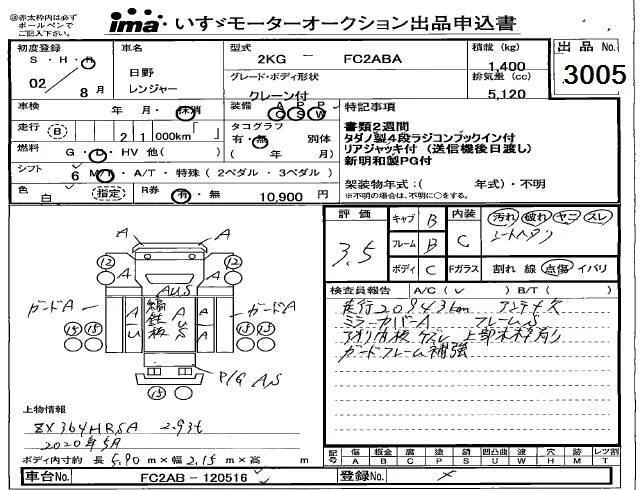 ※赤太枠内は必ず
ボールペンで
ご記入下さい。
ima いすゞモーターオークション出品申込書
初度登録
S・H・R
02 8 月
車名
日野
レンジャー
型式
2KG － FC2ABA
グレード・ボディ形状
クレーン付
積載 (kg)
1,400
排気量 (cc)
5,120
出品 No.
3005
車検 年・月・抹消
装備 A P P
C S W
走行 B 21 000km「 」
タコグラフ
有・無 別体
( 年 月)
燃料 G・D・HV 他( )
シフト 6 M/T・A/T・特殊(2ペダル・3ペダル)
色 白 指定 R券 有・無 10,900 円
特記事項
書類2週間
タダノ製4段ラジコンフックイン付
リアジャッキ付(送信機後日渡し)
新明和製PG付
架装物年式:( 年式)・不明
※不明の場合は、不明に○をする。
評価
3.5
キャブ B
フレーム B
ボディ C
内装 C
汚れ 破れ ヤニ スレ
シートヘタリ
Fガラス 割れ 線 点傷 イバリ
検査員報告 A/C(✓) B/T( )
走行20943km アンテナ欠
ミラーカバーA フレームS
アオリ内板ズレ 上部木枠有り
ガードフレーム補強
A A
12 12
A A
AUS
ガードA ガードA
縞鉄板
AU AUS AU
15 15 15 15
P/G AS
15
上物情報
ZX364HRSA 2.93t
2020年5月
ボディ内寸約 長 5.90 m×幅 2.15 m×高 m
記号 傷 板金 腐 塗 錆 凹凸曲 凹 割 穴 跡 レツ割
A B C P S U W X H M T
車台No. FC2AB－120516
登録No.